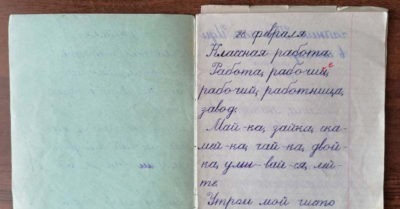 26 февраля
Классная работа.
Работа, рабочий,
рабочий, работница,
завод.
Май-ка, зайка, ска-
мей-ка, гай-ка, двой-
ка, умы-вай-ся, лей-
те.
Утром мой чисто